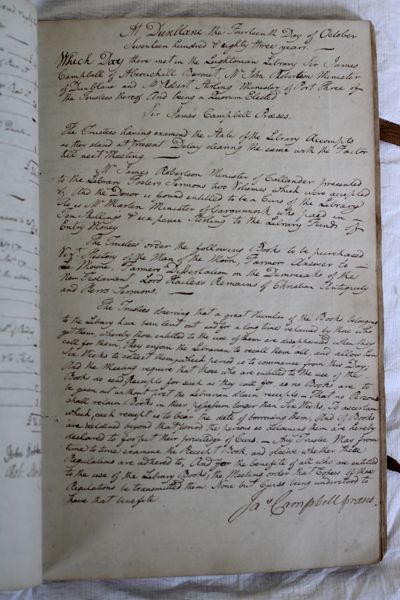 At Dunblane the Fourteenth Day of October
Seventeen hundred & eighty three years. —
Which Day there met in the Leightonian Library Sir James
Campbell of Abernchill Baronet, Mr John Robertson Minister
of Dunblane and Mr Robert Stirling Minister of Port Three of
the Trustees thereof And being a Quorum Elected
Sir James Campbell Præses.
The Trustees having examined the State of the Library Accompts
as they stand at present Delay clearing the same with the Factor
till next Meeting —
Mr James Robertson Minister of Callander presented
to the Library Fosters Sermons two Volumes which were accepted
of, And the Donor is found entitled to be a Cives of the Library
As is Mr Maxton Minister of Gargunnock who paid in
Ten shillings & six pence Sterling to the Library Funds of
Entry Money
The Trustees order the following Books to be purchased
Vizt History of the Man of the Moon, Farmers Answer to
Le Moine, Farmers Dissertation on the Demoniacks of the
New Testament, Lord Hailess Remains of Christian Antiquity
and Sermons. —
The Trustees observing that a great Number of the Books belonging
to the Library have been lent out and for a long time retained by those who
got them, whereby those entitled to the use of them are disappointed when they
call for them, They enjoin the Librarian to recall them all, and allow him
Six Weeks to collect them, which Weeks is to commence from this Day;
And the Meeting require that those who are entitled to the use of these
Books do send Receipts for such as they call for, as no Books are to
be given out without first the Librarian obtain receipts — That no Person
shall retain Books in their possession longer than Six Weeks, To ascertain
which, each receipt is to bear the date of borrowing them, And if Books
are detained beyond that period the persons so detaining them are hereby
declared to forfeit their priviledge of Cives. — Any Trustee May from
time to time examine the Receipt Book, and observe whether these
Regulations are adhered to, And for the benefite of all who are entitled
to the use of the Library Books, the Meeting order that Copies of these
Regulations be transmitted them. None but Cives being understood to
have that benefite.
Jas Campbell præses.